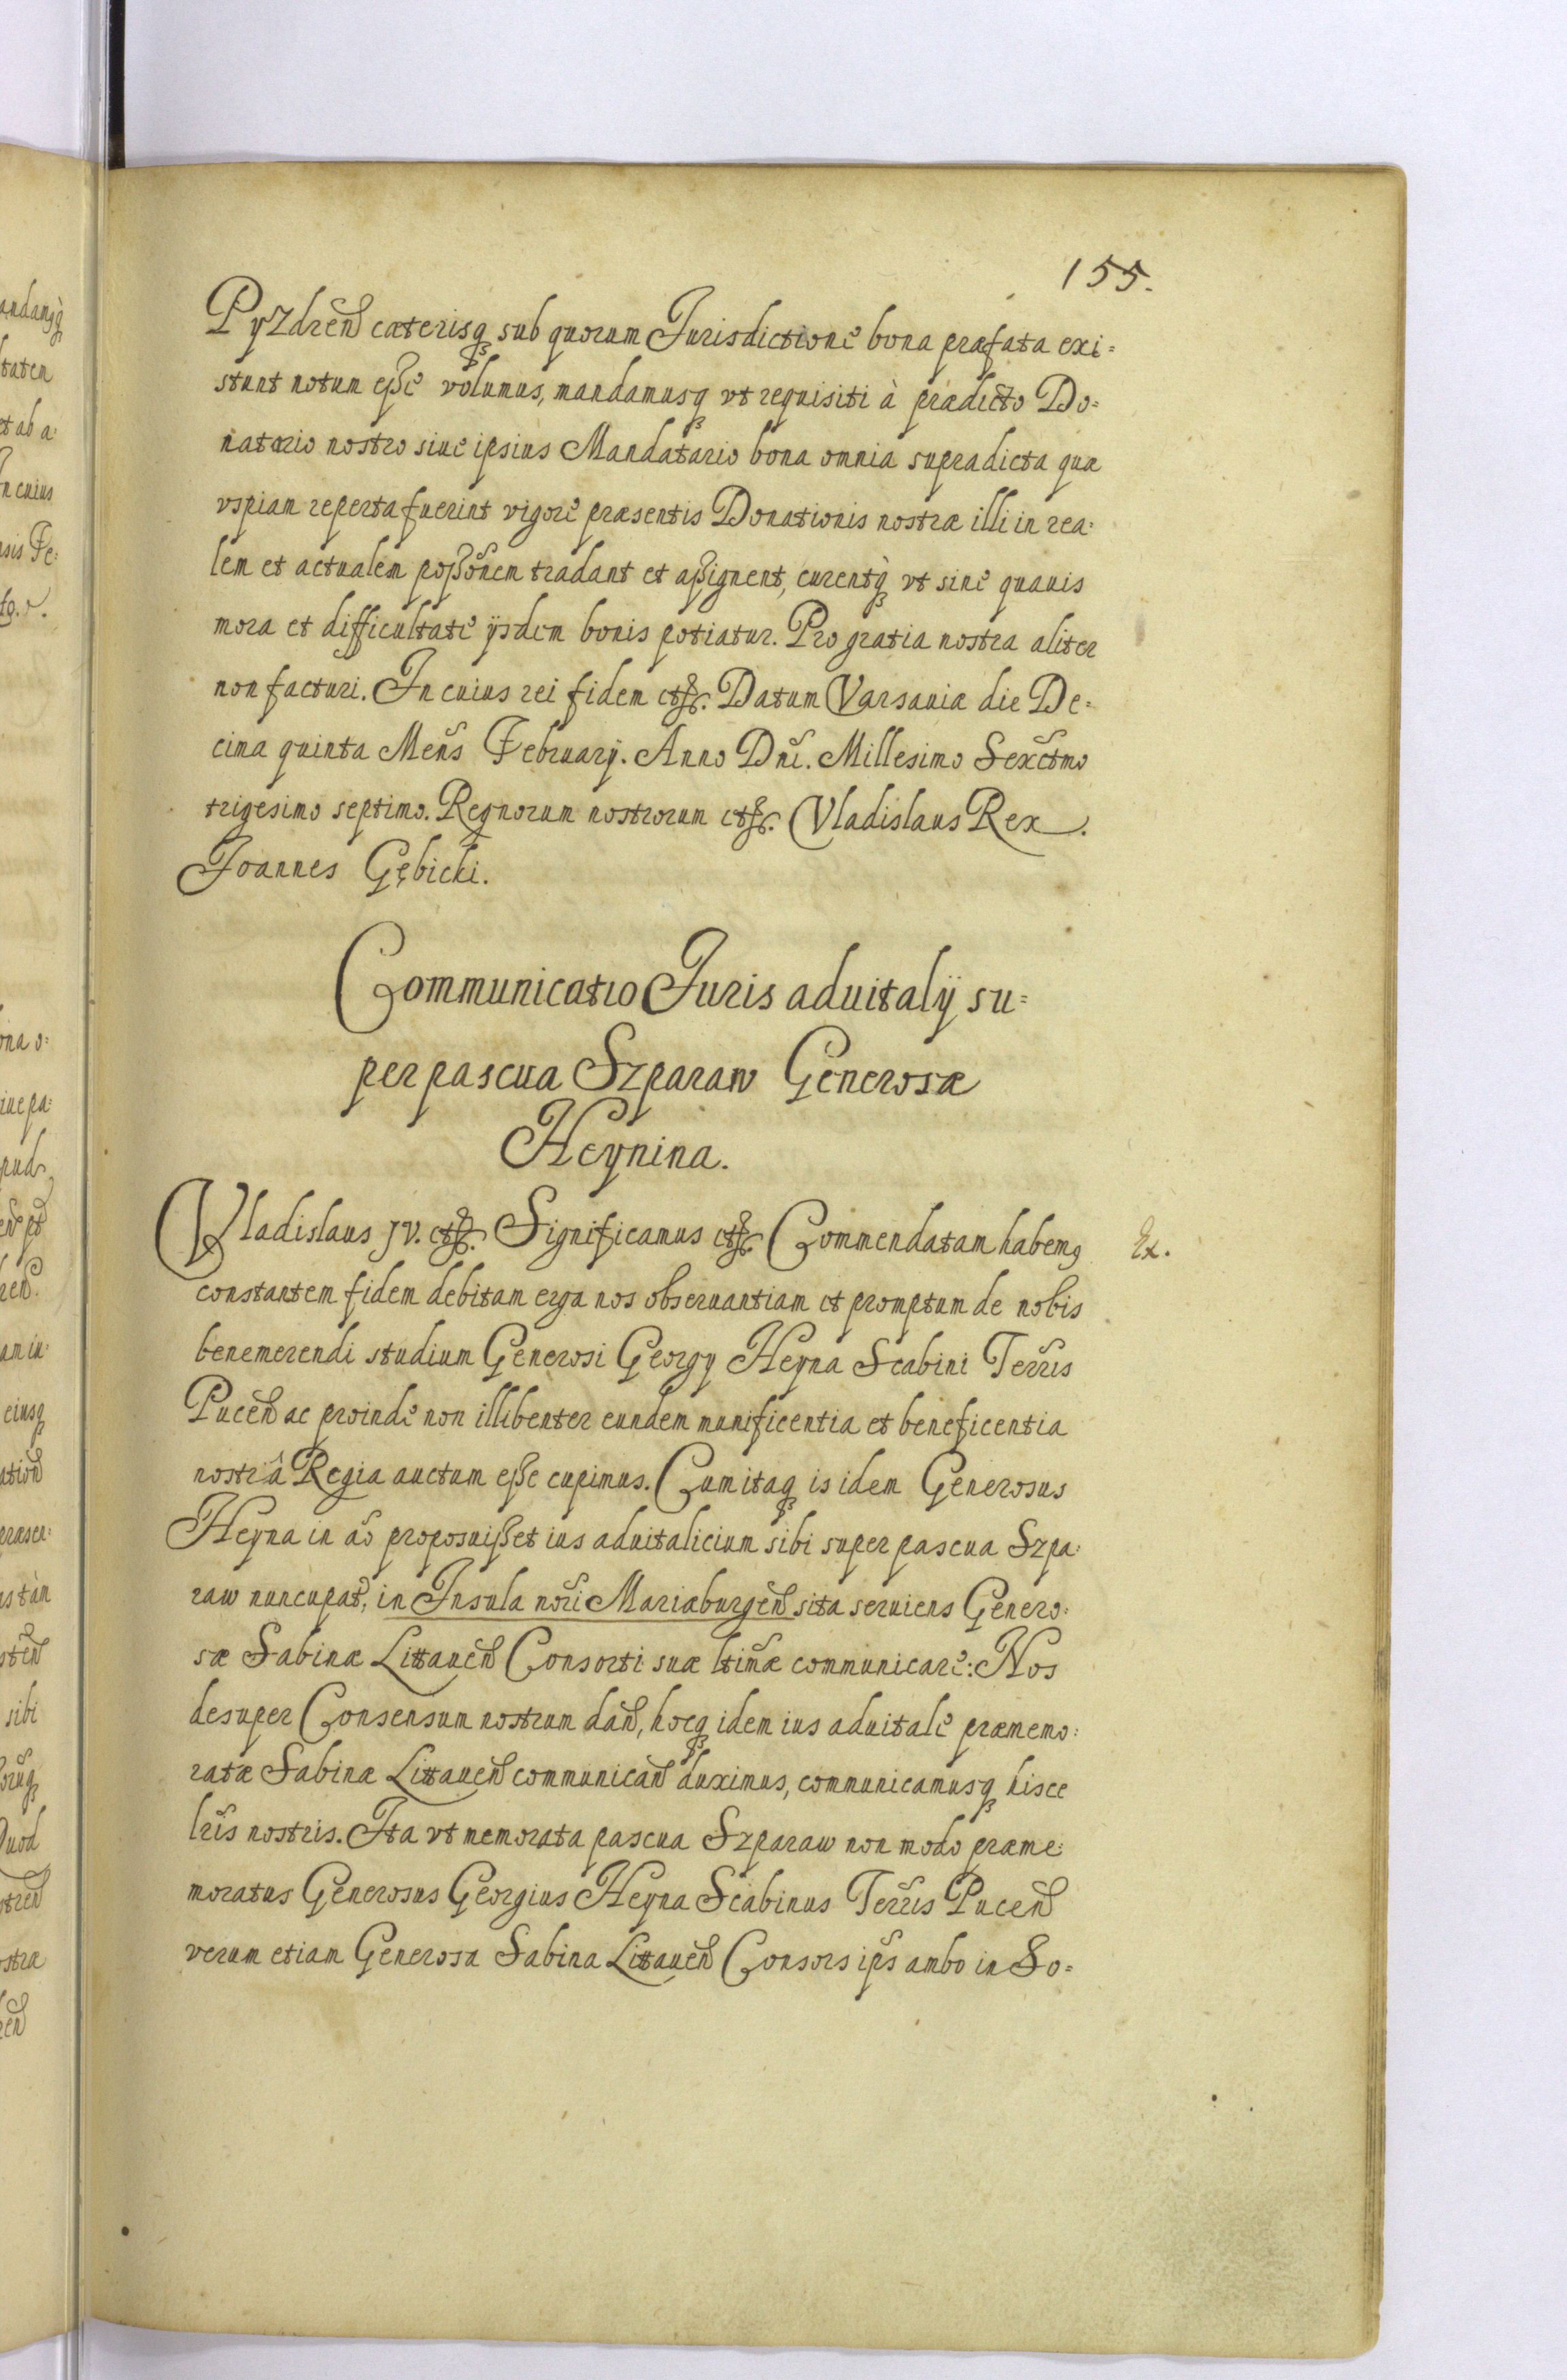 155.
Pyzdreñ cæterisq sub quorum Jurisdictione bona præfata exi=
stunt notum eße volumus, mandamusq vt requisiti à prædicto Do=
natario nostro siue ipsius Mandatario bona omnia supradicta quæ
vspiam reperta fuerint vigore præsentis Donationis nostræ illi in rea=
lem et actualem poßõnem tradant et aßignent, curentq vt sine quauis
mora et difficultate ijsdem bonis potiatur. Pro gratia nostra aliter
non facturi. In cuius rei fidem etc. Datum Varsauiæ die De=
cima quinta Meñs February. Anno Dñi. Millesimo Sexctmo
trigesimo septimo. Regnorum nostrorum etc. Vladislaus Rex.
Joannes Gębicki.
Communicatio Juris aduitalij su=
per pascua Szparaw Generosæ
Heynina.
Vladislaus IV. etc. Significamus etc. Commendatam habemq
Ex.
constantem fidem debitam erga nos obseruantiam et promptum de nobis
benemerendi studium Generosi Georgy Heyna Scabini Terris
Puceñ ac proinde non illibenter eundem munificentia et beneficentia
nostrâ Regia auctum eße cupimus. Cum itaq is idem Generosus
Heyna in aõ proposuißet ius aduitalicium sibi super pascua Szpa=
raw nuncupat, in Insula nõri Mariæburgeñ sita seruiens Genero=
sæ Sabinæ Littaueñ Consorti suæ ltimæ communicare: Nos
desuper Consensum nostrum dañ, hocq idem ius aduitale præmemo=
ratæ Sabinæ Littaueñ communicañ duximus, communicamusq hisce
lris nostris. Ita vt memorata pascua Szparaw non modo præme=
moratus Generosus Georgius Heyna Scabinus Terris Puceñ
verum etiam Generosa Sabina Littaueñ Consors ips ambo in So=